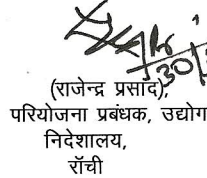 30/
(राजेन्द्र प्रसाद),
परियोजना प्रबंधक, उद्योग
निदेशालय,
राँची